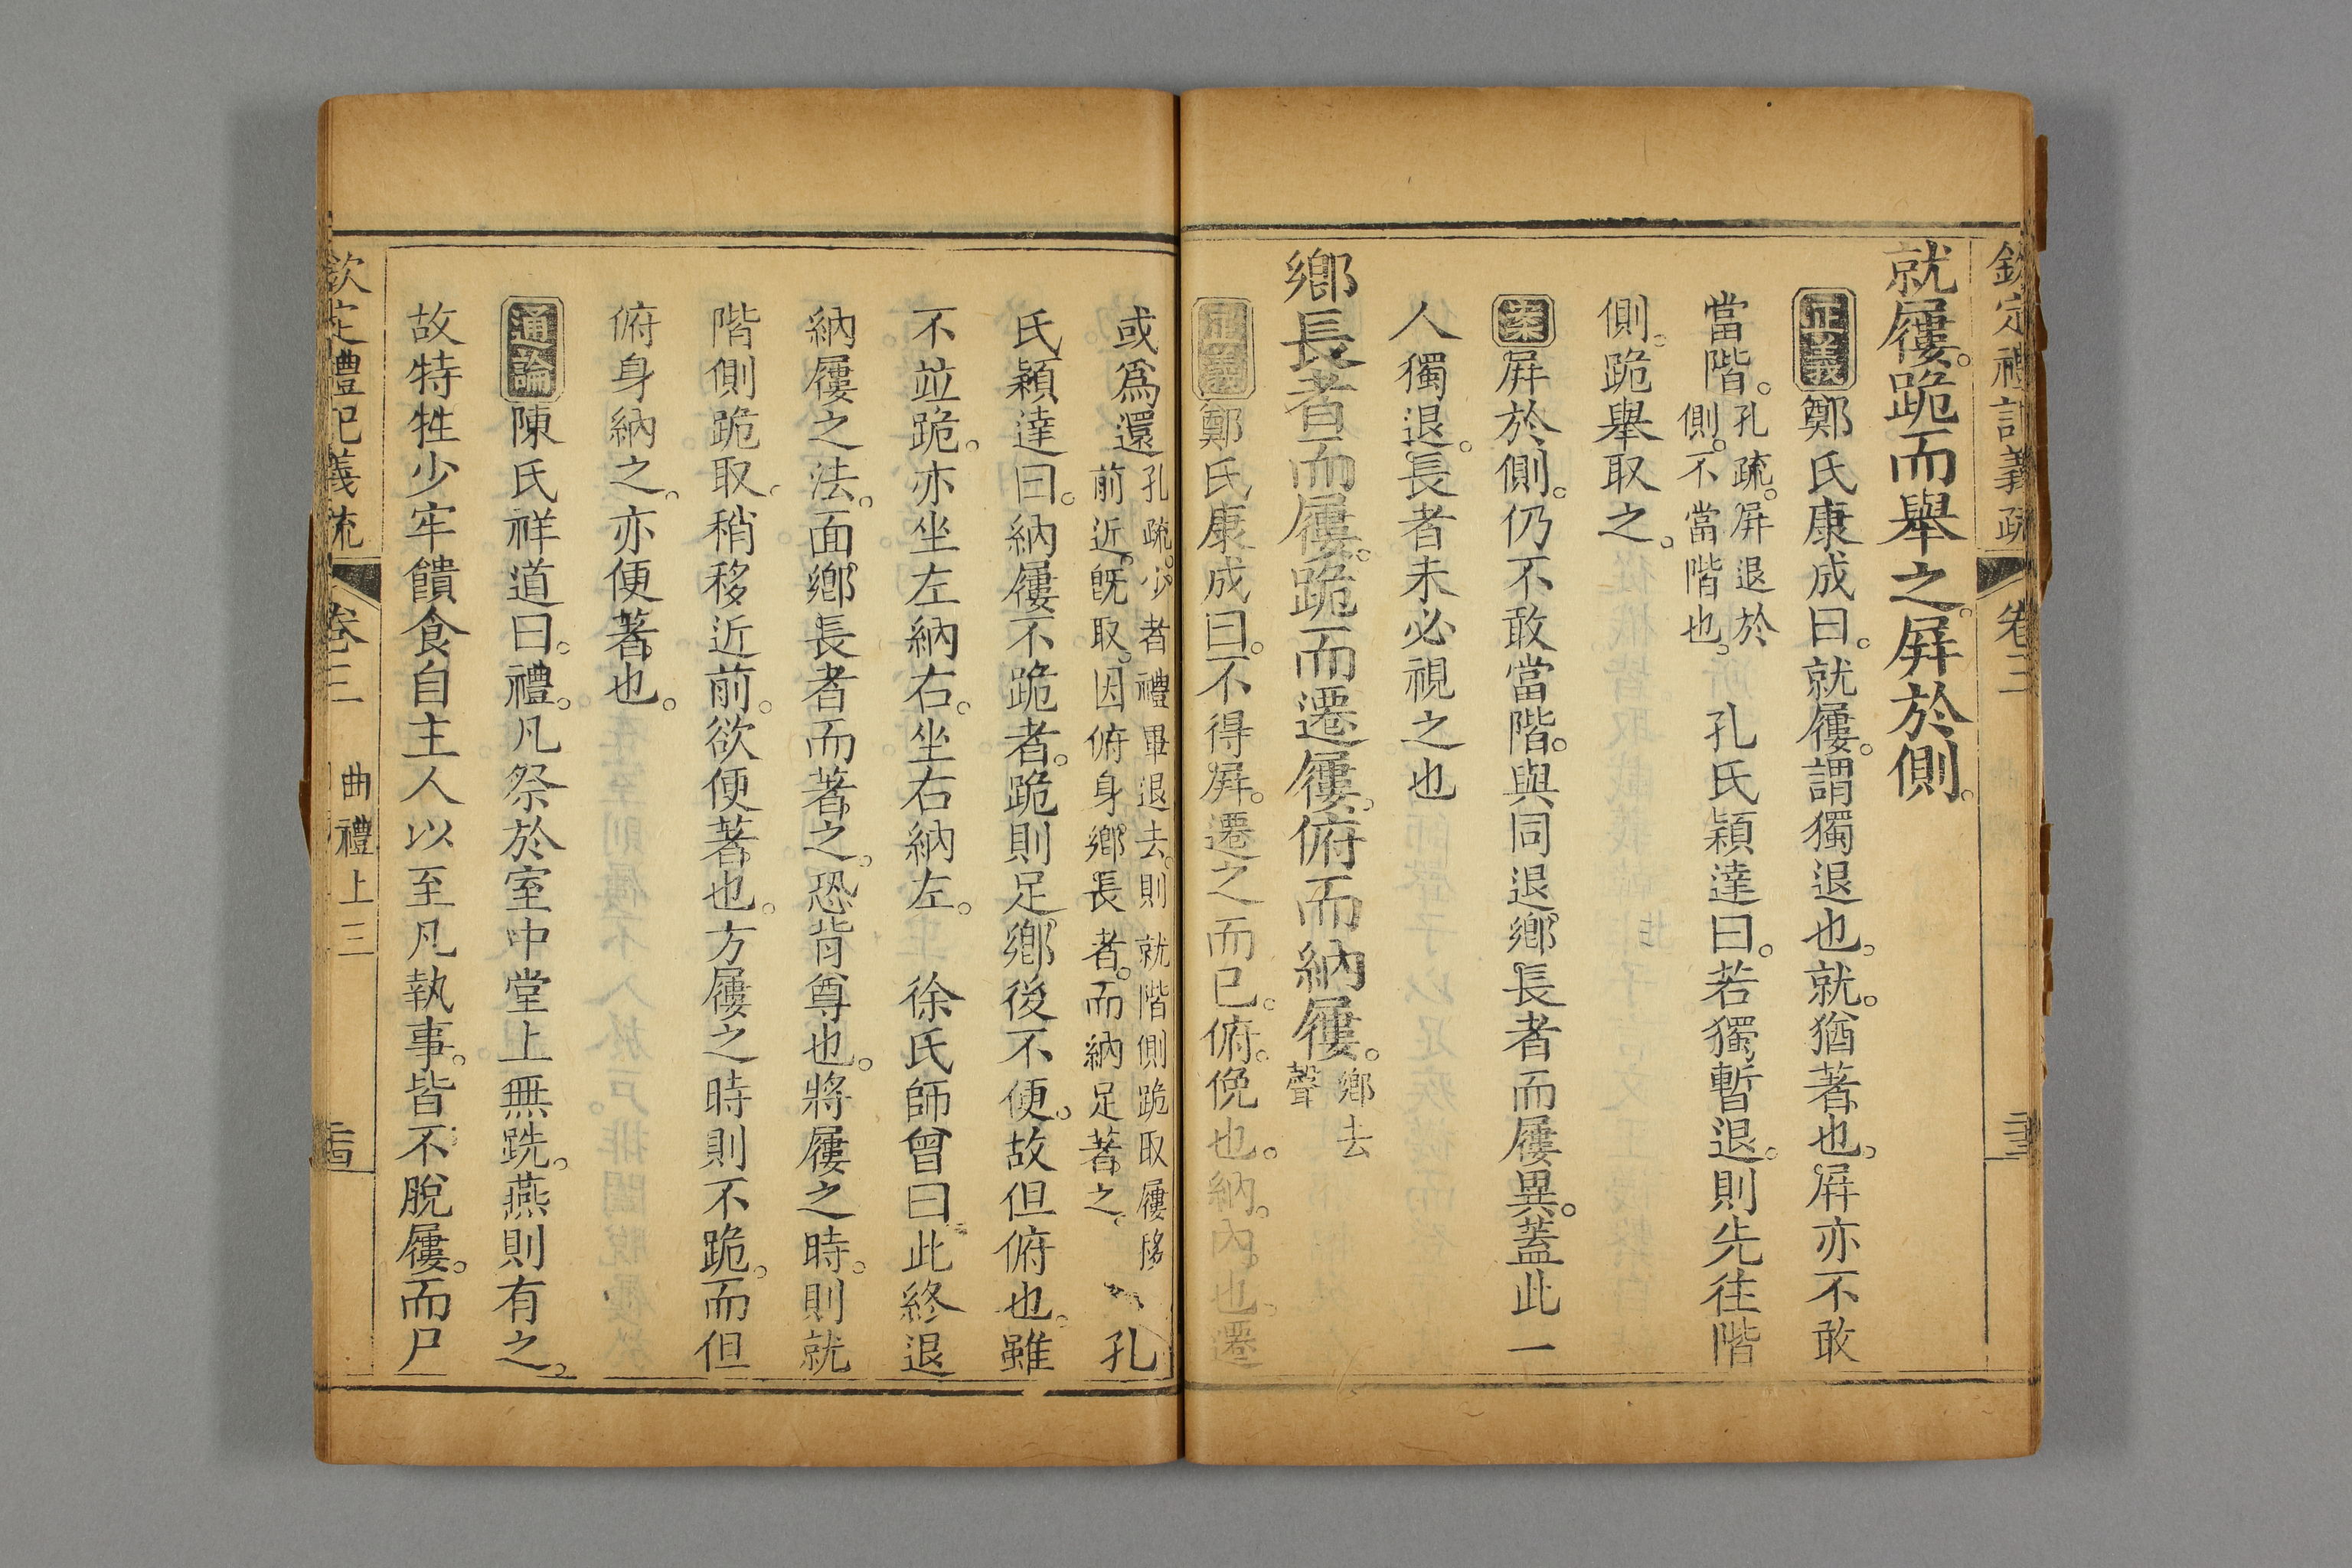 欽定禮記義疏 卷三
就屨。跪而舉之。屏於側。
正義鄭氏康成曰。就屨。謂獨退也。就。猶著也。屏亦不敢
當階。孔疏。屏退於側。不當階也。 孔氏穎達曰。若獨暫退。則先往階
側。跪舉取之。
案屏於側。仍不敢當階。與同退鄉長者而屨異。蓋此一
人獨退。長者未必視之也
鄉長者而屨。跪而遷屨。俯而納屨。鄉去聲
正義鄭氏康成曰。不得屏。遷之而已。俯。俛也。納。內也。遷
或爲還孔疏。少者禮畢退去。則就階側跪取屨移前近。旣取。因俯身鄉長者。而納足著之。 孔
氏穎達曰。納屨不跪者。跪則足鄉後不便。故但俯也。雖
不竝跪。亦坐左納右。坐右納左。 徐氏師曾曰此終退
納屨之法。面鄉長者而著之。恐背尊也。將屨之時。則就
階側跪取。稍移近前。欲便著也。方屨之時則不跪。而但
俯身納之。亦便著也。
通論陳氏祥道曰。禮。凡祭於室中堂上無跣。燕則有之。
故特牲少牢饋食自主人以至凡執事。皆不脫屨。而尸
欽定禮記義疏 卷三 曲禮上三